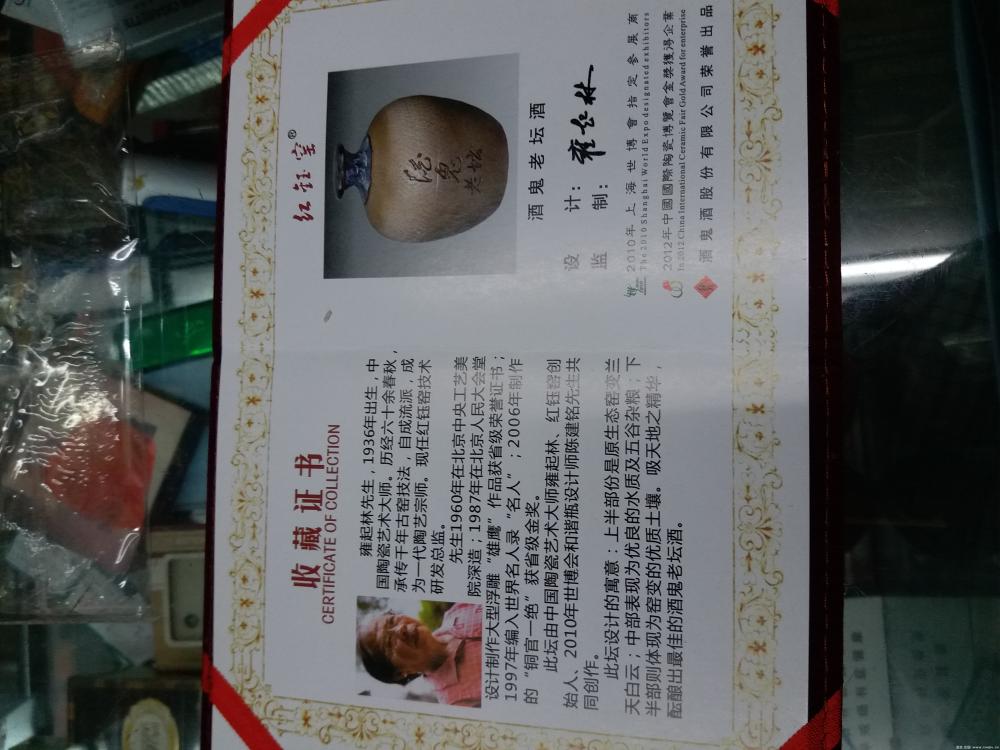 收藏证书
CERTIFICATE OF COLLECTION
雍起林先生，1936年出生，中
国陶瓷艺术大师。历经六十余春秋，
承传千年古窑技法，自成流派，成
为一代陶艺宗师。现任红钰窑技术
研发总监。
先生1960年在北京中央工艺美
院深造；1987年在北京人民大会堂
设计制作大型浮雕“雄鹰”作品获省级荣誉证书；
1997年编入世界名人录“名人”；2006年制作
的“铜官一绝”获省级金奖。
此坛由中国陶瓷艺术大师雍起林、红钰窑创
始人、2010年世博会和谐瓶设计师陈建铭先生共
同创作。
此坛设计的寓意：上半部份是原生态窑变兰
天白云；中部表现为优良的水质及五谷杂粮；下
半部则体现为窑变的优质土壤。吸天地之精华，
酝酿出最佳的酒鬼老坛酒。
红钰窑®
酒鬼
老坛
酒鬼老坛酒
设计：
监制：
雍起林
2010年上海世博會指定參展商
The 2010 Shanghai World Expo designated exhibitors
2012年中國國際陶瓷博覽會金獎獲得企業
In 2012 China International Ceramic Fair Gold Award for enterprise
酒鬼酒股份有限公司荣誉出品